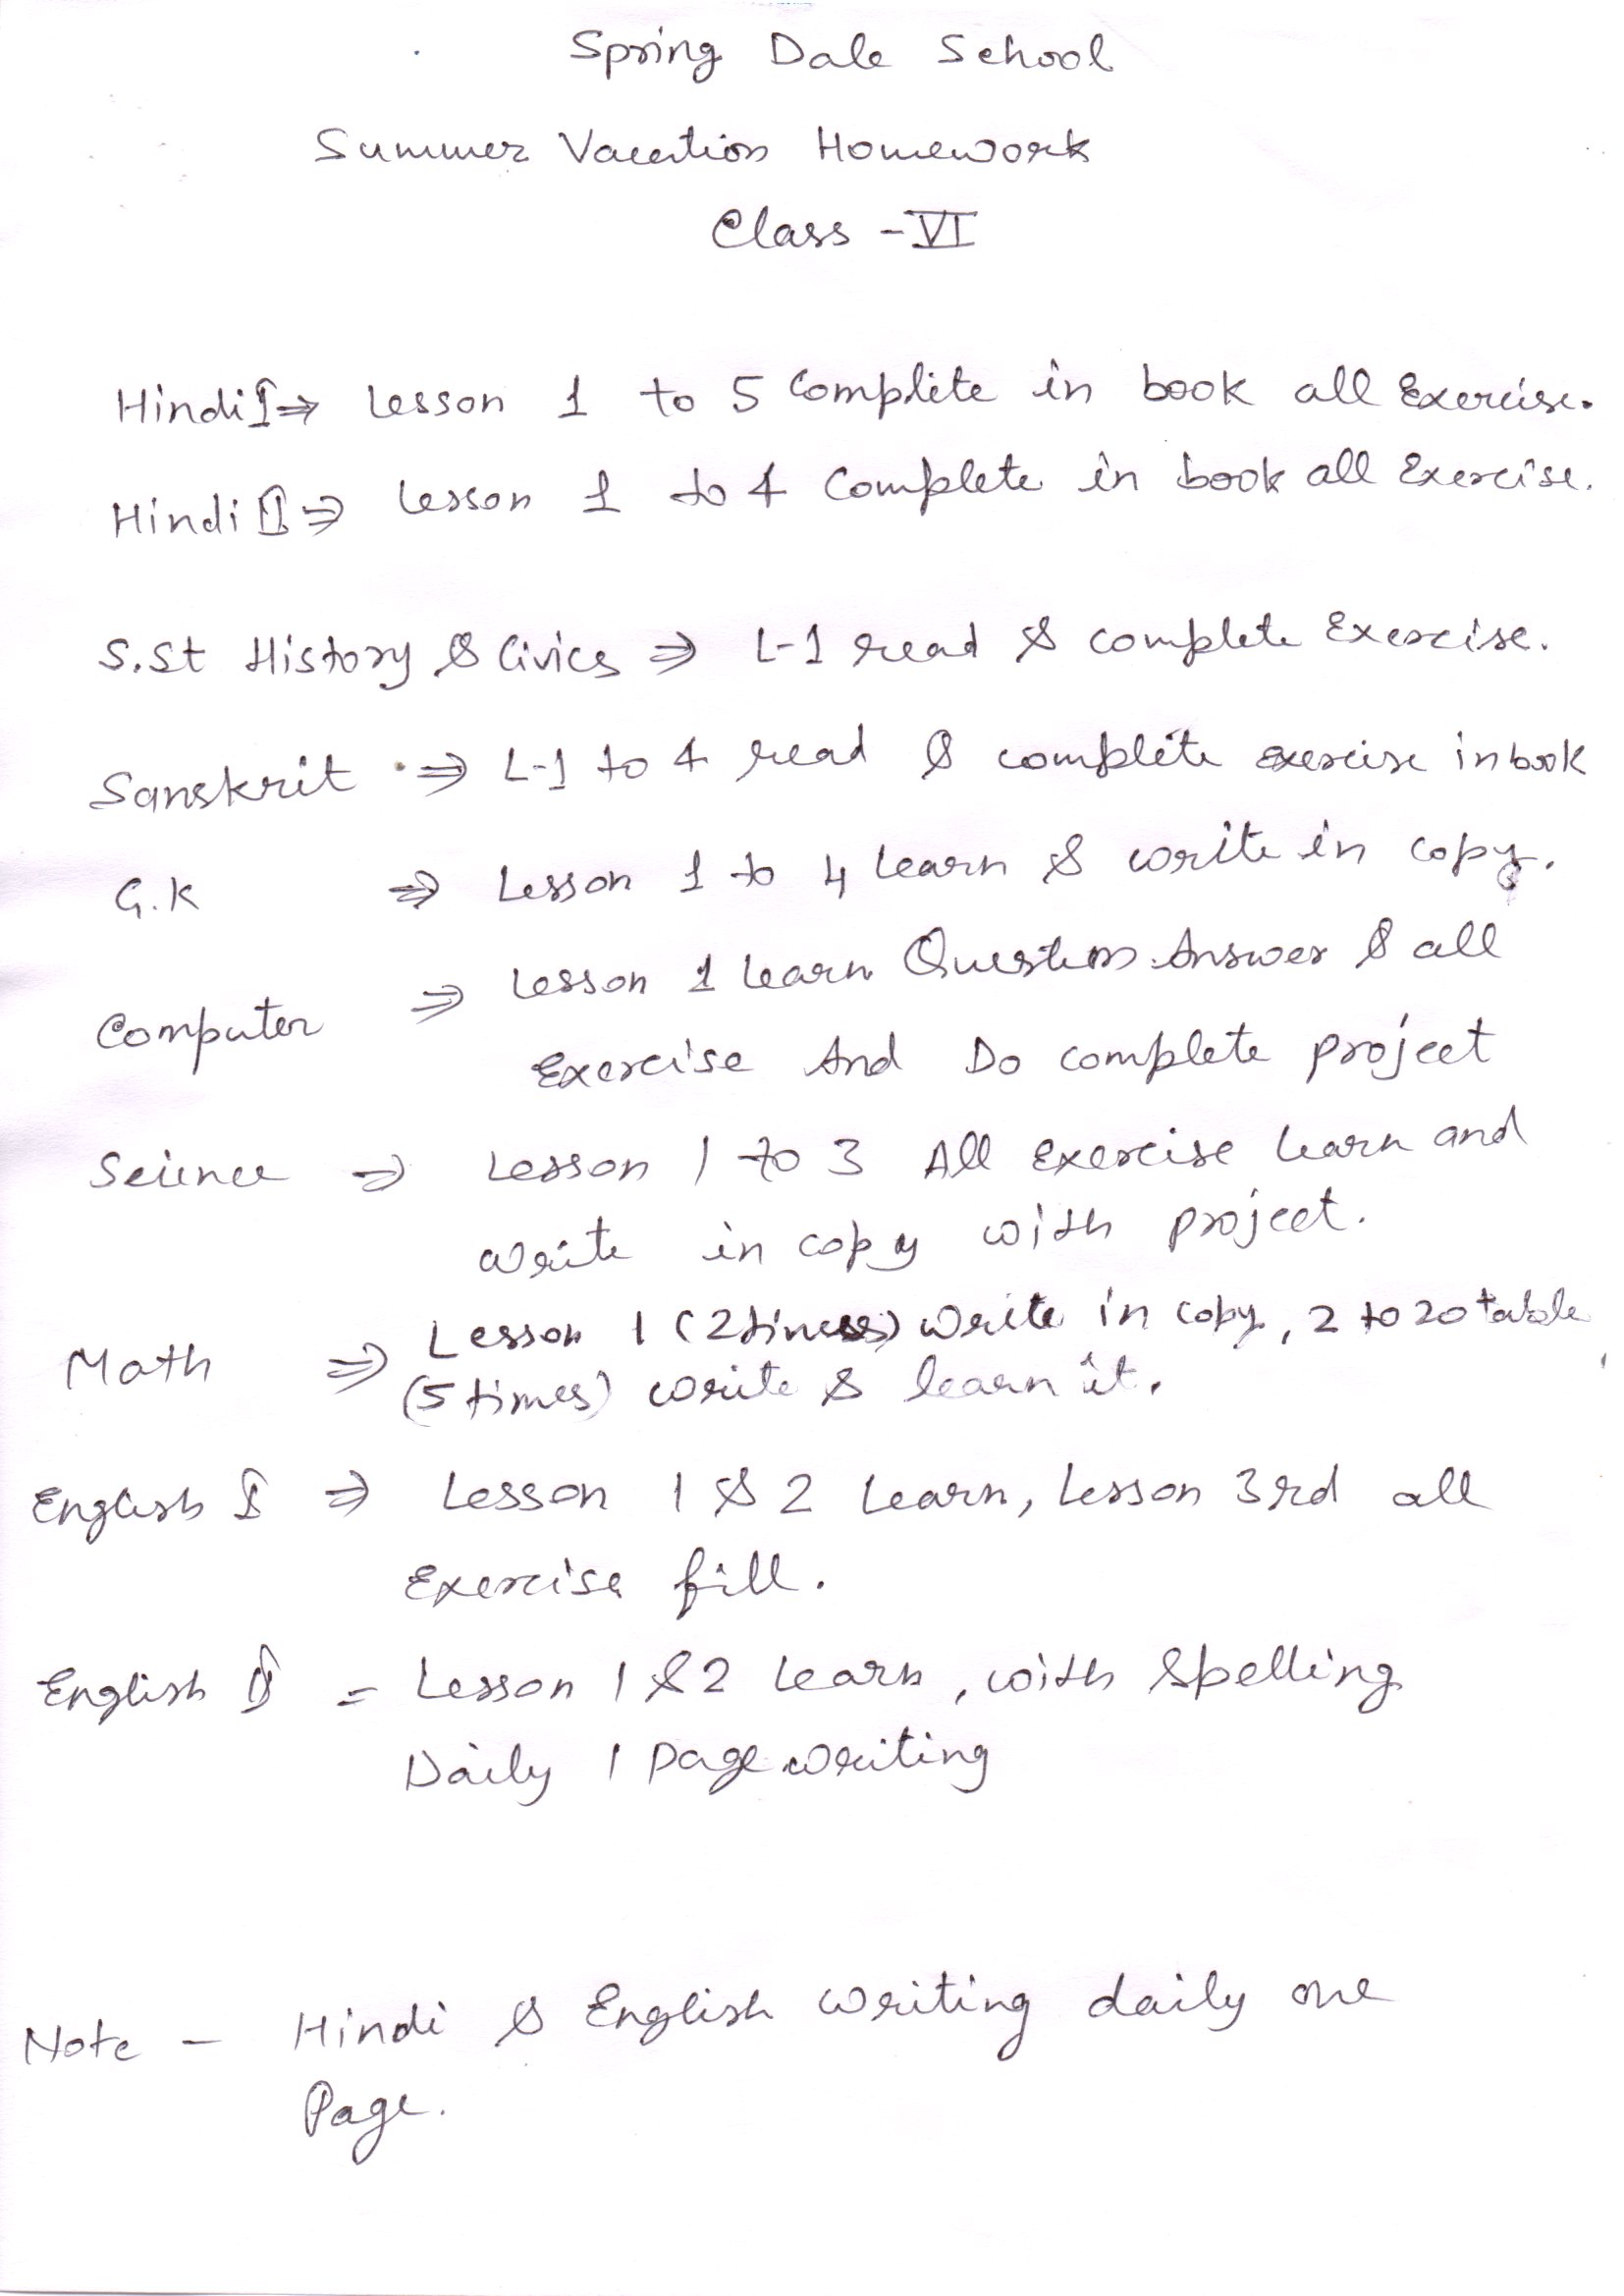 Spring Dale School
Summer Vacation Homework
Class - VI
Hindi I ⇒ Lesson 1 to 5 Complite in book all Exercise.
Hindi II ⇒ Lesson 1 to 4 Complete in book all Exercise.
S.St History & Civics ⇒ L-1 read & complete Exercise.
Sanskrit ⇒ L-1 to 4 read & complete exercise in book
G.K ⇒ Lesson 1 to 4 learn & write in copy.
Computer ⇒ Lesson 1 learn Question Answer & all
Exercise And Do complete project
Science ⇒ Lesson 1 to 3 All exercise learn and
write in copy with project.
Math ⇒ Lesson 1 (2 times) write in copy, 2 to 20 table
(5 times) write & learn it.
English I ⇒ Lesson 1 & 2 Learn, Lesson 3rd all
Exercise fill.
English II = Lesson 1 & 2 learn, with Spelling
Daily 1 page writing
Note - Hindi & English writing daily one
Page.